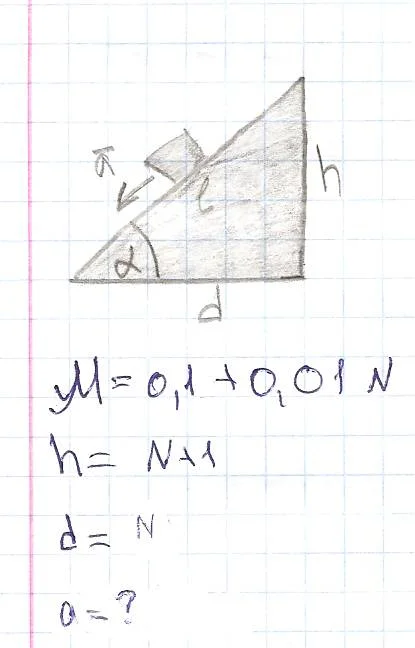 a
h
l
α
d
M = 0,1 + 0,01 N
h = N+1
d = N
a = ?